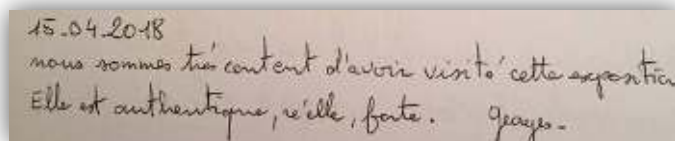 15.04.2018
nous sommes très content d'avoir visité cette exposition
Elle est authentique, réelle, forte. Georges.